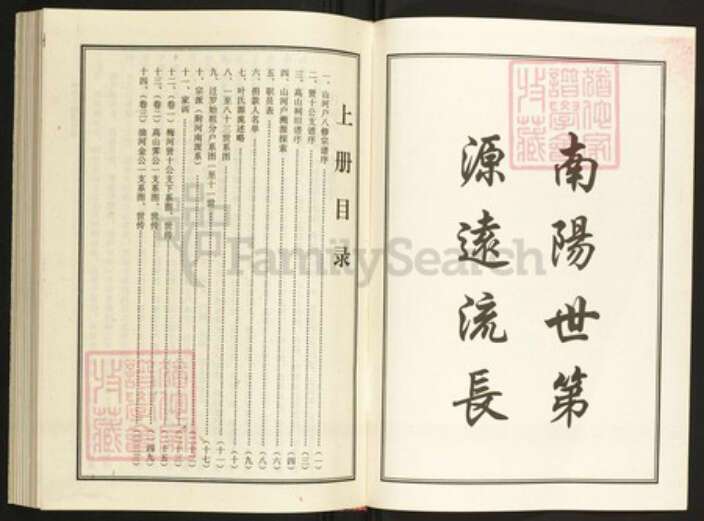 南陽世第
源遠流長
上册目录
一、山河户八修宗谱序 (一)
二、贤十公支谱序 (三)
三、高山柯旧谱序 (四)
四、山河户溯源探索 (六)
五、职员表 (八)
六、捐款人名单 (九)
七、叶氏源流述略 (十)
八、一至八十三世系图 (十一)
九、迁罗始祖分户系图(至十一世) (十七)
十、宗派(附河南派系)
十一、家训
十二、(卷一)梅河贤十公支下系图、世传
十三、(卷二)高山 公一支系图、世传 (四九)
十四、(卷三)油河金公一支系图、世传
FamilySearch